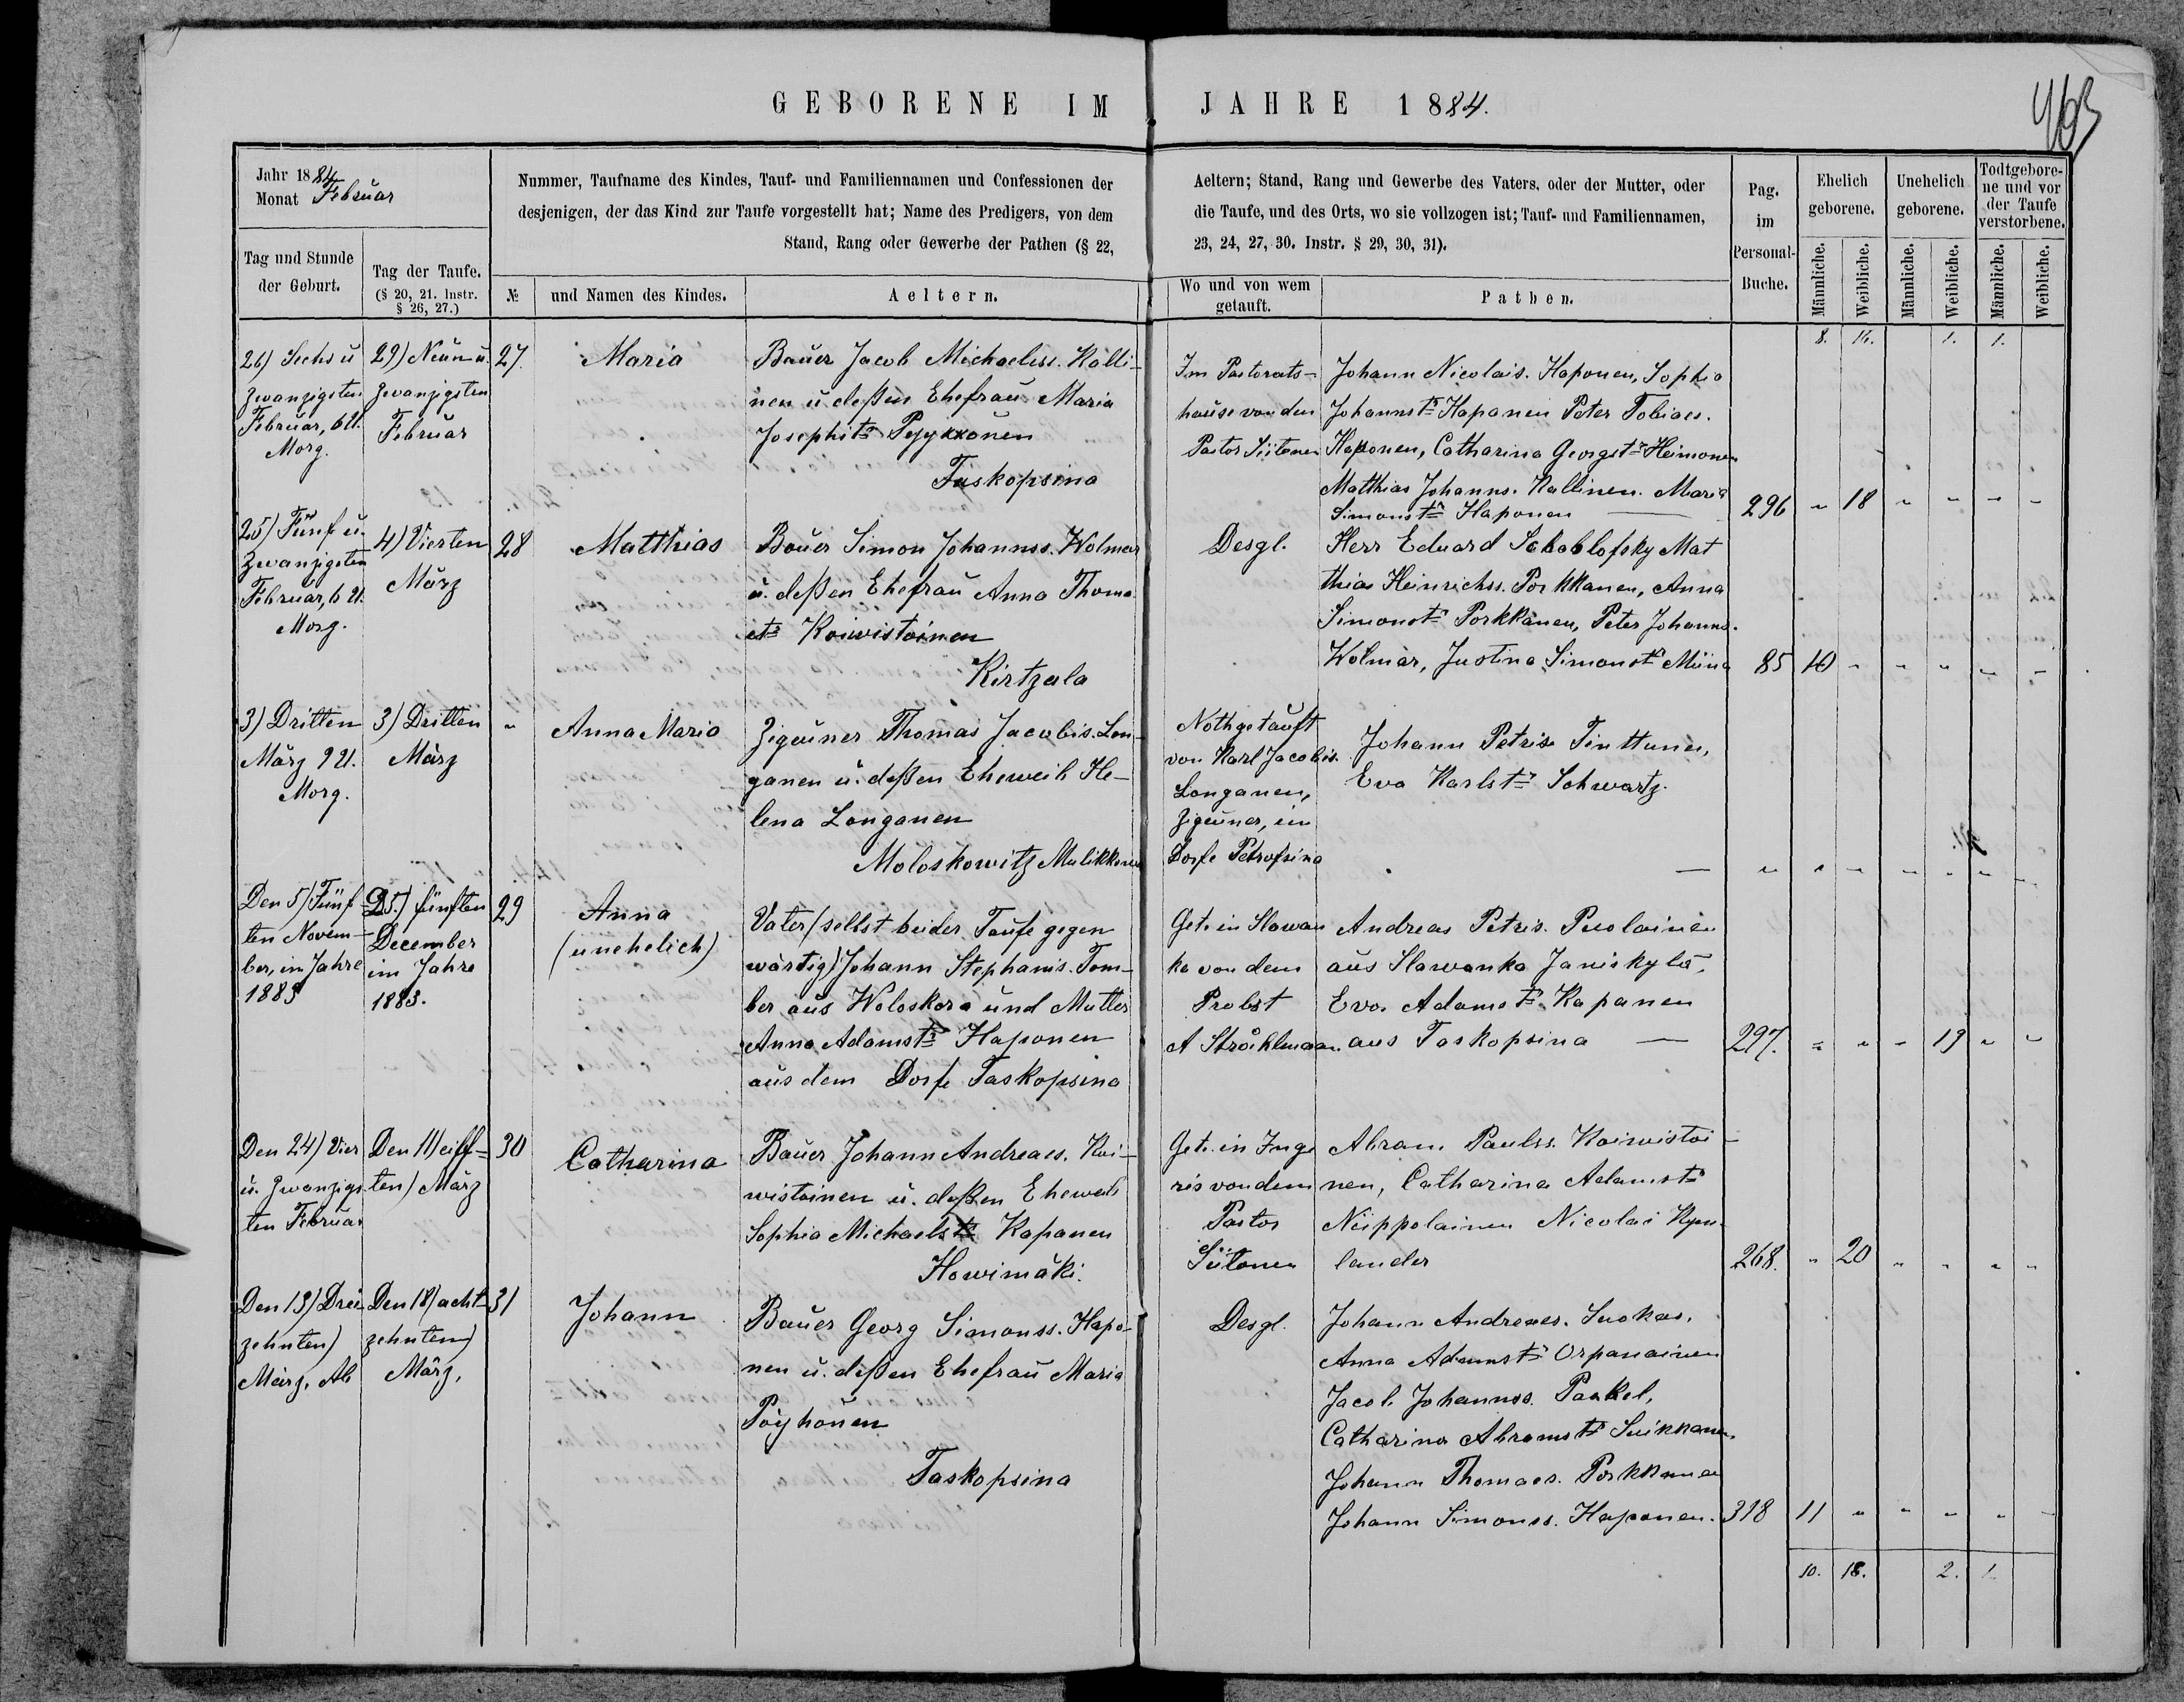 GEBORENE IM JAHRE 1884.
463
Jahr 1884
Monat Februar
Tag und Stunde
der Geburt.
Tag der Taufe.
(§ 20, 21. Instr.
§ 26, 27.)
Nummer, Taufname des Kindes, Tauf- und Familiennamen und Confessionen der
desjenigen, der das Kind zur Taufe vorgestellt hat; Name des Predigers, von dem
Stand, Rang oder Gewerbe der Pathen (§ 22,
№
und Namen des Kindes.
Aeltern.
Aeltern; Stand, Rang und Gewerbe des Vaters, oder der Mutter, oder
die Taufe, und des Orts, wo sie vollzogen ist; Tauf- und Familiennamen,
23, 24, 27, 30. Instr. § 29, 30, 31).
Wo und von wem
getauft.
Pathen.
Pag.
im
Personal-
Buche.
Ehelich
geborene.
Unehelich
geborene.
Todtgebore-
ne und vor
der Taufe
verstorbene.
Männliche.
Weibliche.
Männliche.
Weibliche.
Männliche.
Weibliche.
8. 16. 1. 1.
26) Sechs u
zwanzigsten
Februar, 6 U.
Morg.
29) Neun u.
zwanzigsten
Februar
27.
Maria
Bauer Jacob Michaelss. Kalli-
nen u. deßen Ehefrau Maria
Josephstr
Taskopsina
Im Pastorats-
hause von dem
Pastor Siitonen
Johann Nicolais. Haponen, Sophia
Johannstr Kapanen Peter Tobiaes.
Haponen, Catharina Georgstr Heimonen
Matthias Johanns. Kallinen. Maria
Simonstr Haponen
296 " 18 " " " "
25) Fünf u.
zwanzigsten
Februar, 6 U.
Morg.
4) Vierten
März
28
Matthias
Bauer Simon Johannss. Wolmar
u. deßen Ehefrau Anna Thoma
str Koiwistoinen
Kirtzala
Desgl.
Herr Eduard Mat
thias Heinrichss. Porkkanen, Anna
Simonstr Porkkanen, Peter Johanns.
Wolmar, Justina Simonstr
85 10 " " " " "
3) Dritten
März 9 U.
Morg.
3) Dritten
März
"
Anna Maria
Zigeuner Thomas Jacobis. Lon-
ganen u. deßen Eheweib He-
lena Longanen
Moloskowitz
Nothgetauft
von Karl Jacobis.
Longanen,
Zigeuner, im
Dorfe Petrofsina
Johann Petris
Eva Karlstr Schwartz.
" " " " " " "
Den 5) Fünf
ten Novem-
ber, im Jahre
1883
D 5.) fünften
December
im Jahre
1883.
29
Anna
(unehelich)
Vater (selbst bei der Taufe gegen
wärtig) Johann Stephanis. Tom-
ber aus Woloskora und Mutter
Anna Adamstr Haponen
aus dem Dorfe Taskopsina
Get. in Slawan
ka von dem
Probst
A Stråhlmann
Andreas Petris. Puolainen
aus Slawanka Janiskylä,
Eva Adamstr Kapanen
aus Taskopsina
297. " " " 19 " "
Den 24) Vier
u. zwanzigs
ten Februar
Den 11) eilf-
ten) März
30
Catharina
Bauer Johann Andreaes. Koi-
wistoinen u. deßen Eheweib
Sophia Michaelstr Kapanen
Howimäki.
Get. in Inge
ris von dem
Pastor
Siitonen
Abram Paulss. Koiwistoi-
nen, Catharina Adamstr
Niippolainen Nicolai
lander
268. " 20 " " " "
Den 13) Drei
zehnten)
März, Ab
Den 18) acht
zehnten)
März,
31
Johann
Bauer Georg Simonss. Hapo-
nen u. deßen Ehefrau Maria
Pöyhönen
Taskopsina
Desgl.
Johann Andreaes. Suokas,
Anna Adamstr Orpanainen
Jacob Johannss. Paakel,
Catharina Abramstr Suikkanen,
Johann Thomaes. Porkkanen
Johann Simonss. Haponen.
318 11 " " " " "
10. 18. 2. 1.